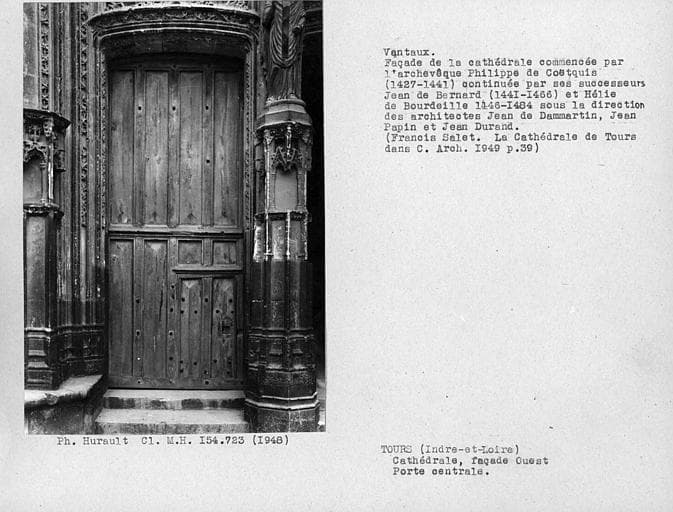 Vantaux.
Façade de la cathédrale commencée par
l'archevêque Philippe de Coëtquis
(1427-1441) continuée par ses successeurs
Jean de Bernard (1441-1466) et Hélie
de Bourdeille 1446-1484 sous la direction
des architectes Jean de Dammartin, Jean
Papin et Jean Durand.
(Francis Salet. La Cathédrale de Tours
dans C. Arch. 1949 p.39)
Ph. Hurault Cl. M.H. 154.723 (1948)
TOURS (Indre-et-Loire)
Cathédrale, façade Ouest
Porte centrale.